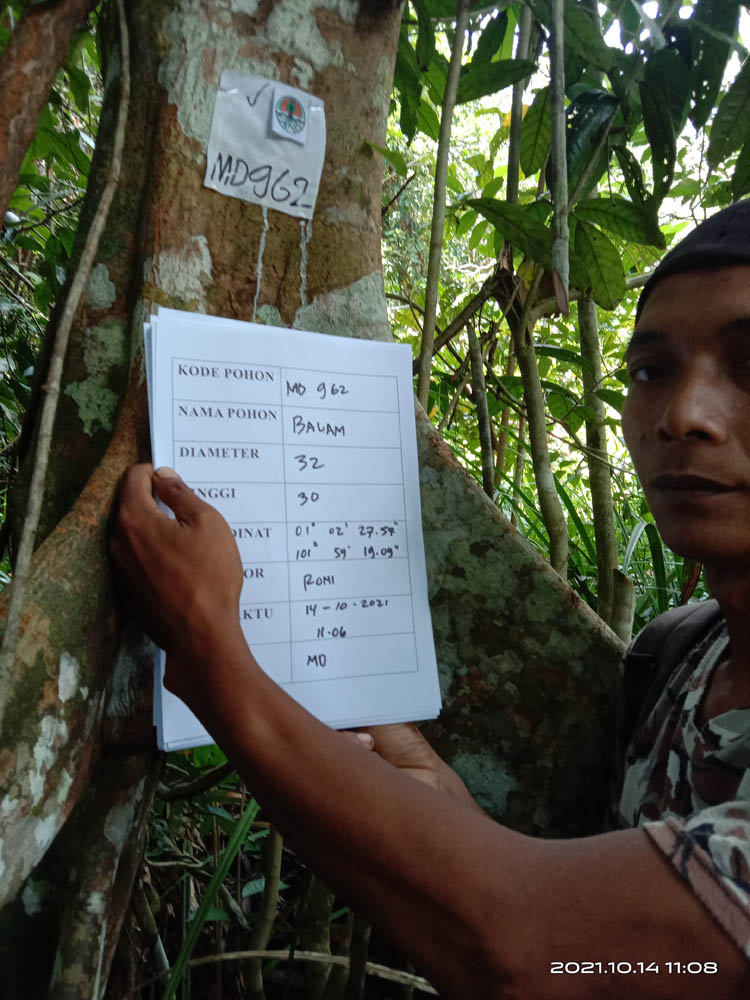 MD962
KODE POHON MD 962
NAMA POHON BALAM
DIAMETER 32
INGGI 30
DINAT 01° 02' 27.54"
101° 59' 19.09"
OR RONI
KTU 14-10-2021
11.06
MD
2021.10.14 11:08